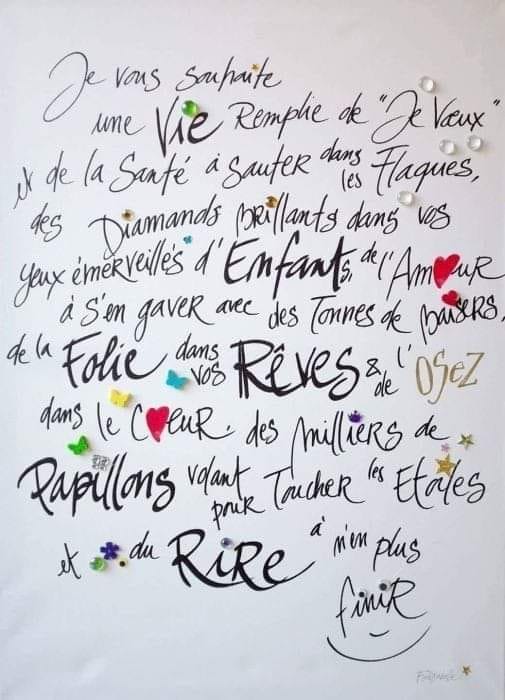 Je vous souhaite
une Vie Remplie de "Je Vœux"
et de la Santé à Sauter dans les Flaques,
des Diamands Brillants dans vos
yeux émerveillés d'Enfants, de l'Amour
à S'en gaver avec des Tonnes de baisers,
de la Folie dans vos Rêves & de l'Osez
dans le Cœur, des Milliers de
Papillons volant pour Toucher les Etoiles
et du Rire à n'en plus
finir